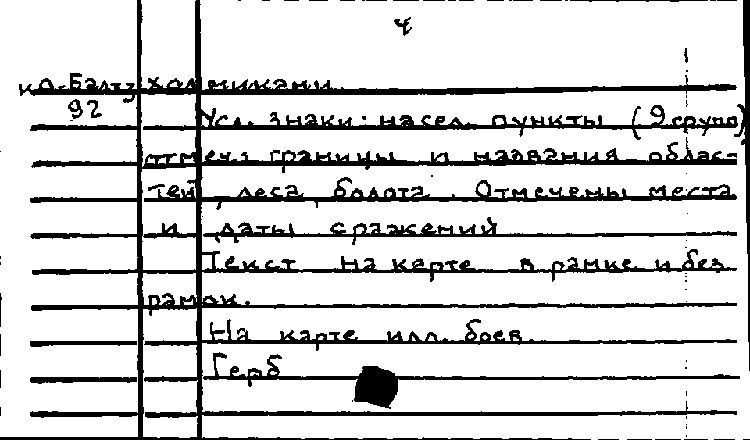 4
ко-Балтз холмиками.
92
Усл. знаки: насел. пункты (9 групп)
отмеч. границы и названия облас-
тей, леса, болота. Отмечены места
и даты сражений
Текст на карте в рамке и без
рамок.
На карте илл. боев.
Герб